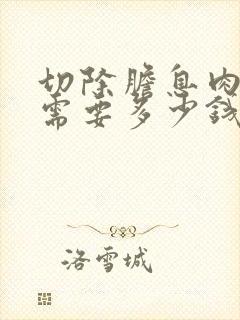 切除膽息肉
需要多少錢
洛雪城